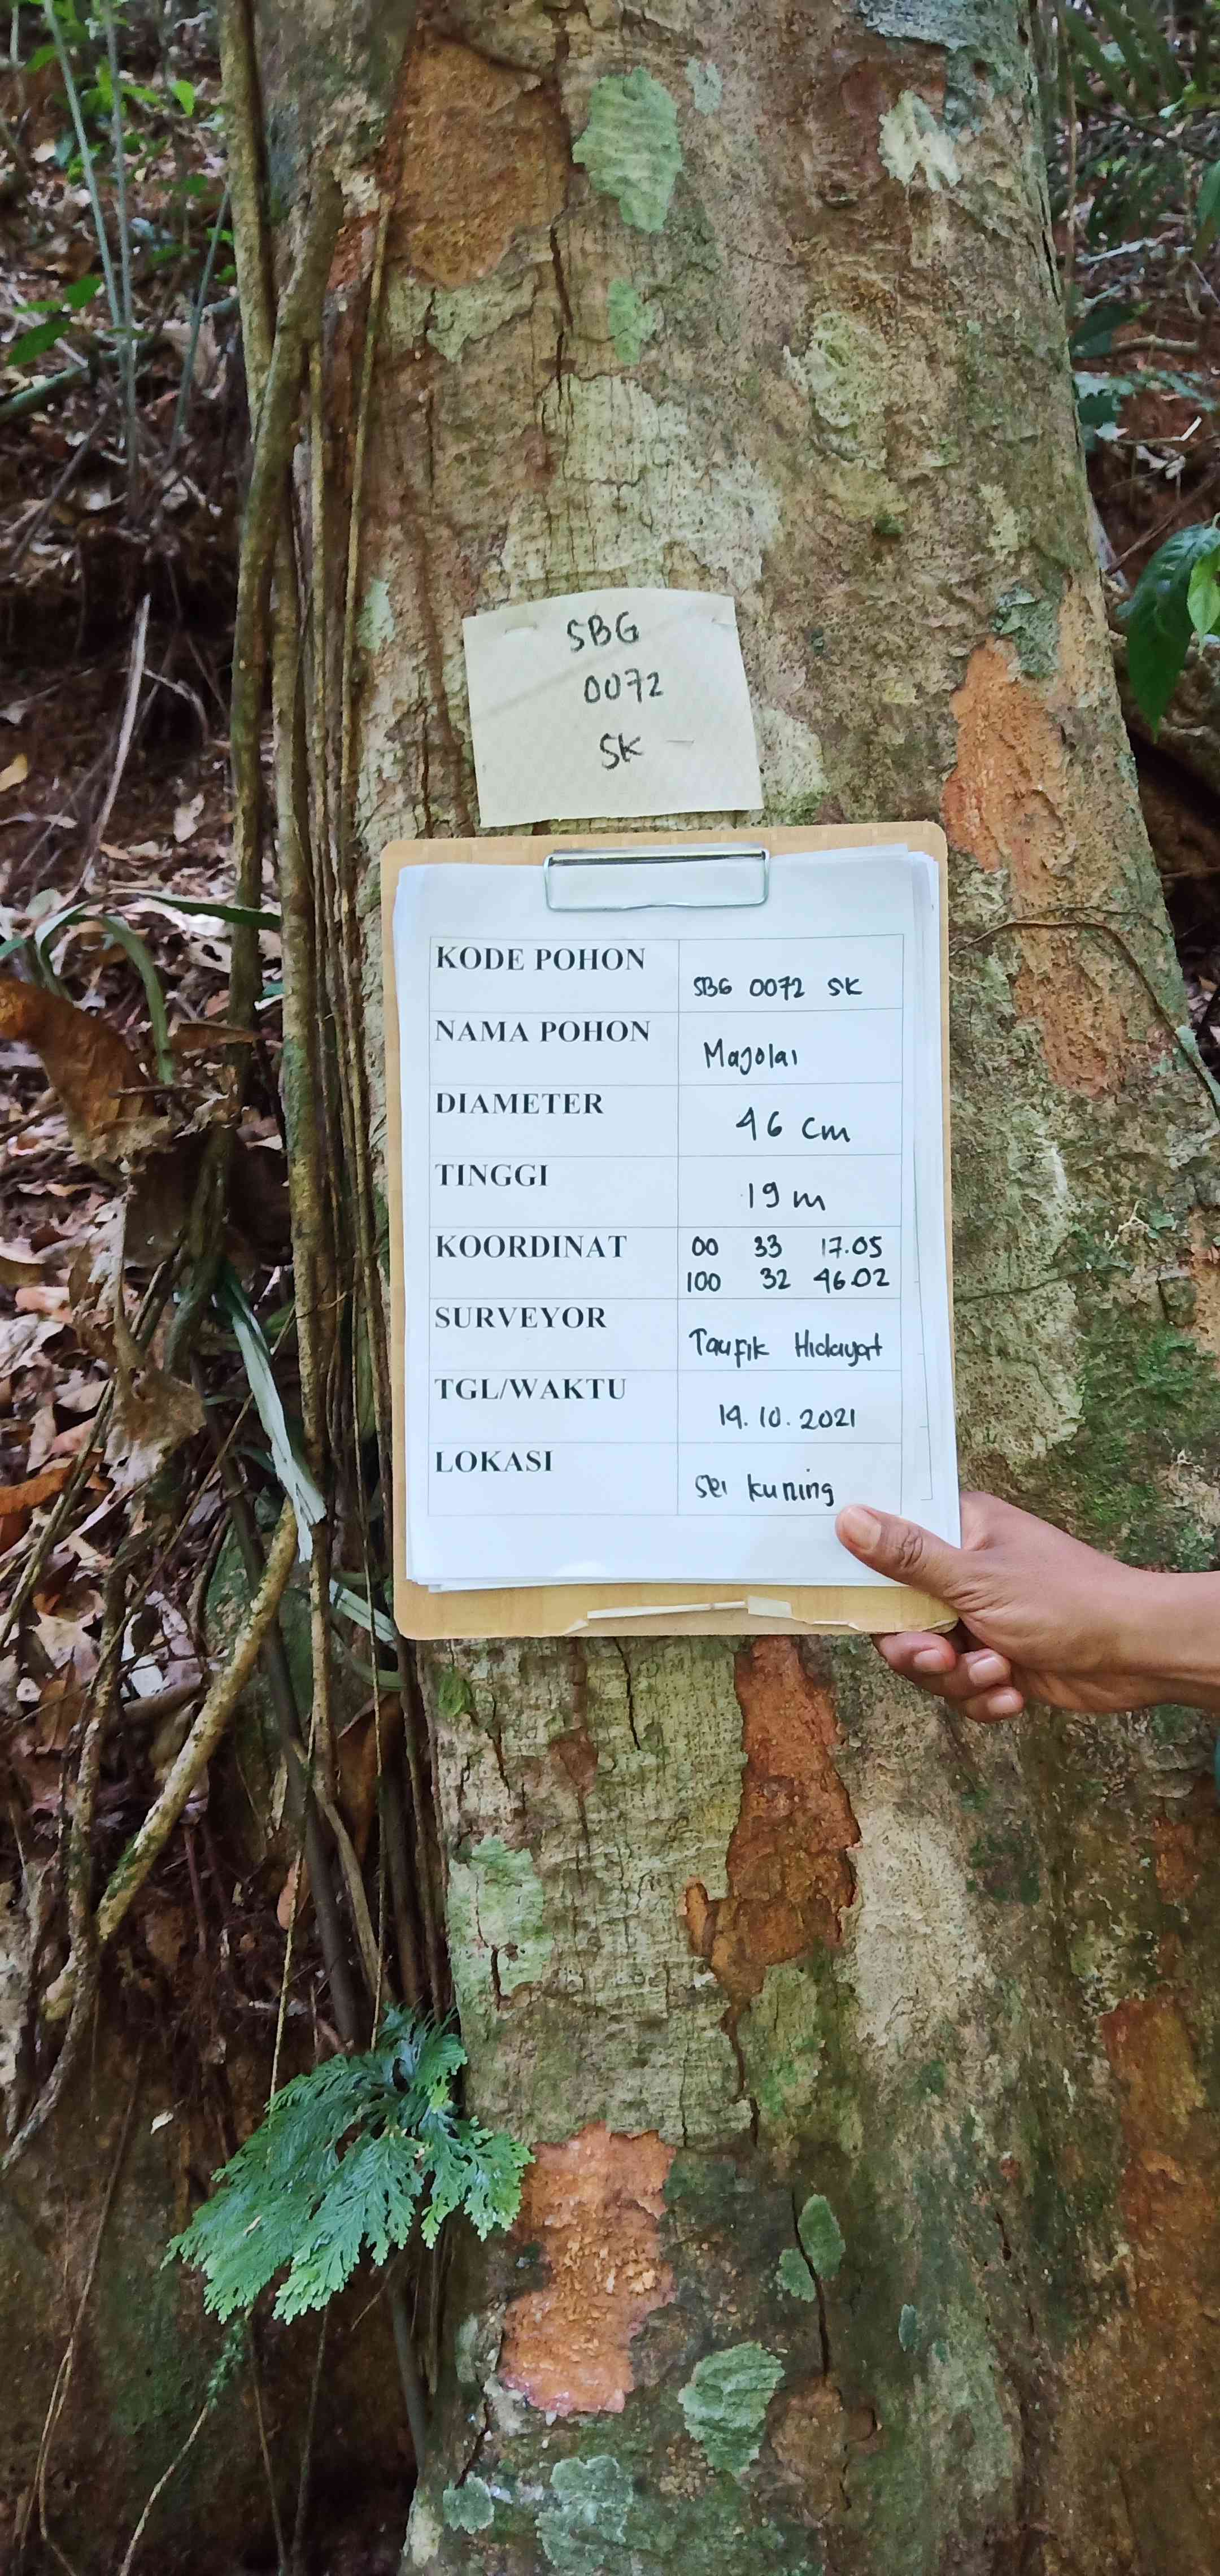 SBG
0072
SK
KODE POHON
SBG 0072 SK
NAMA POHON
Majolai
DIAMETER
46 cm
TINGGI
19 m
KOORDINAT
00 33 17.05
100 32 46.02
SURVEYOR
Taufik Hidayat
TGL/WAKTU
19.10.2021
LOKASI
Sei kuning